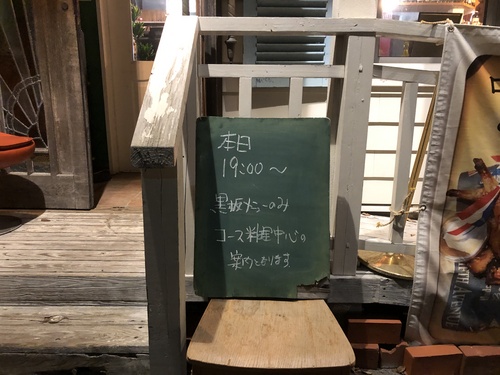 本日
19:00〜
黒板メニューのみ
コース料理中心の
案内となります